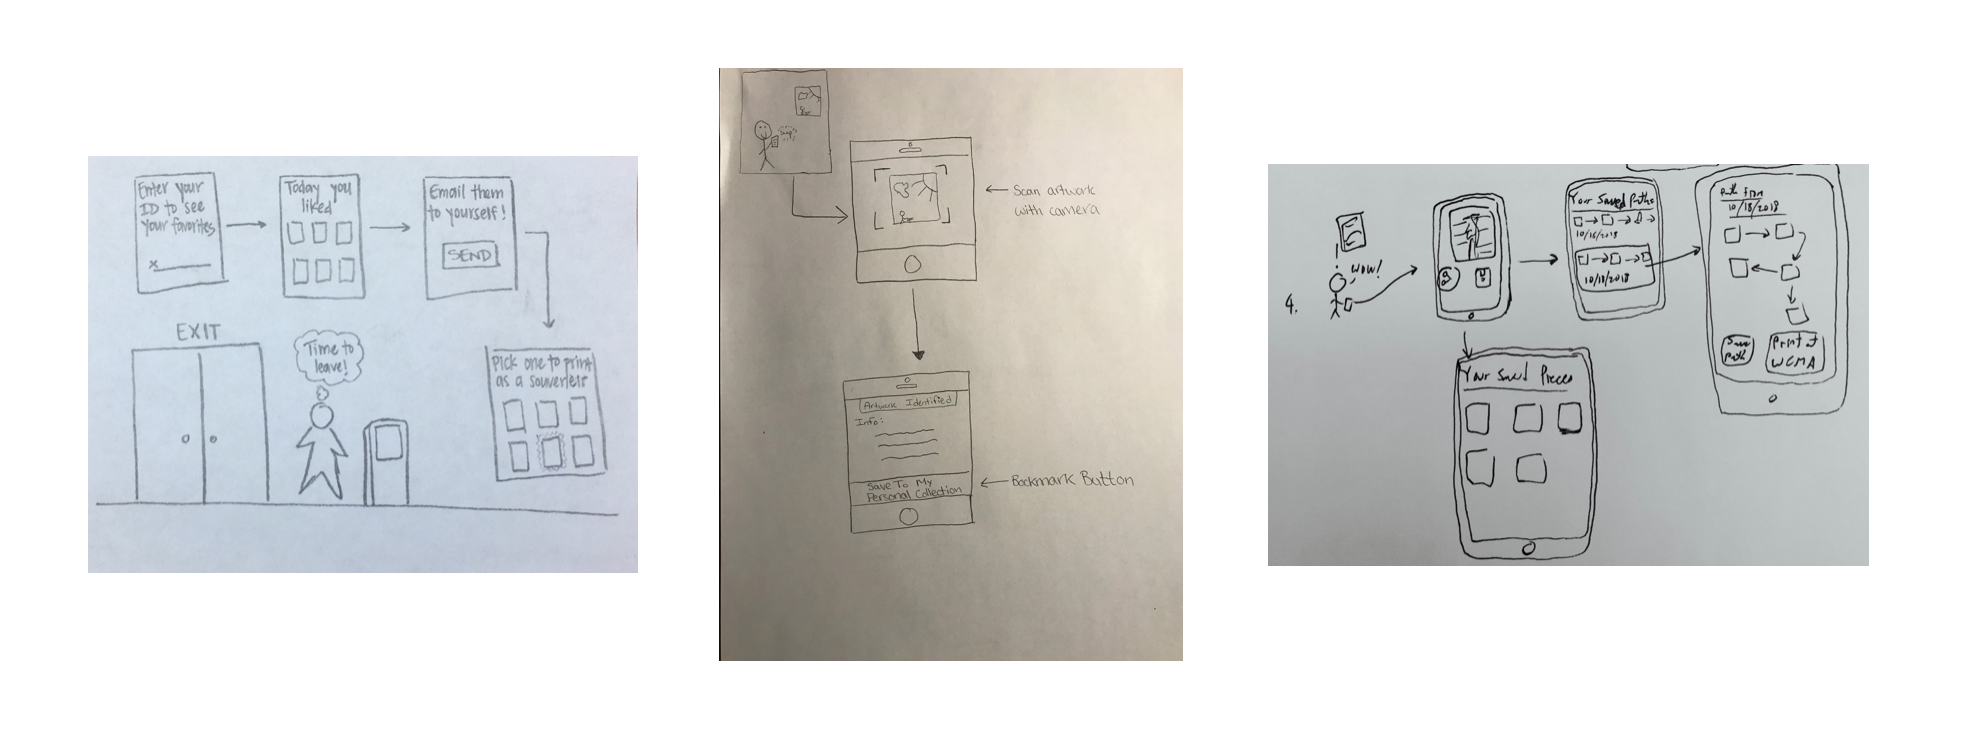 Enter your
ID to see
your favorites
x
Today you
liked
Email them
to yourself!
SEND
EXIT
Time to
leave!
Pick one to print
as a souvenir
Scan artwork
with camera
Artwork Identified
Info:
Save To My
Personal Collection
Bookmark Button
4.
WOW!
Your Saved Paths
10/16/2018
10/18/2018
Path from
10/18/2018
Save
Path
Print at
WCMA
Your Saved Pieces